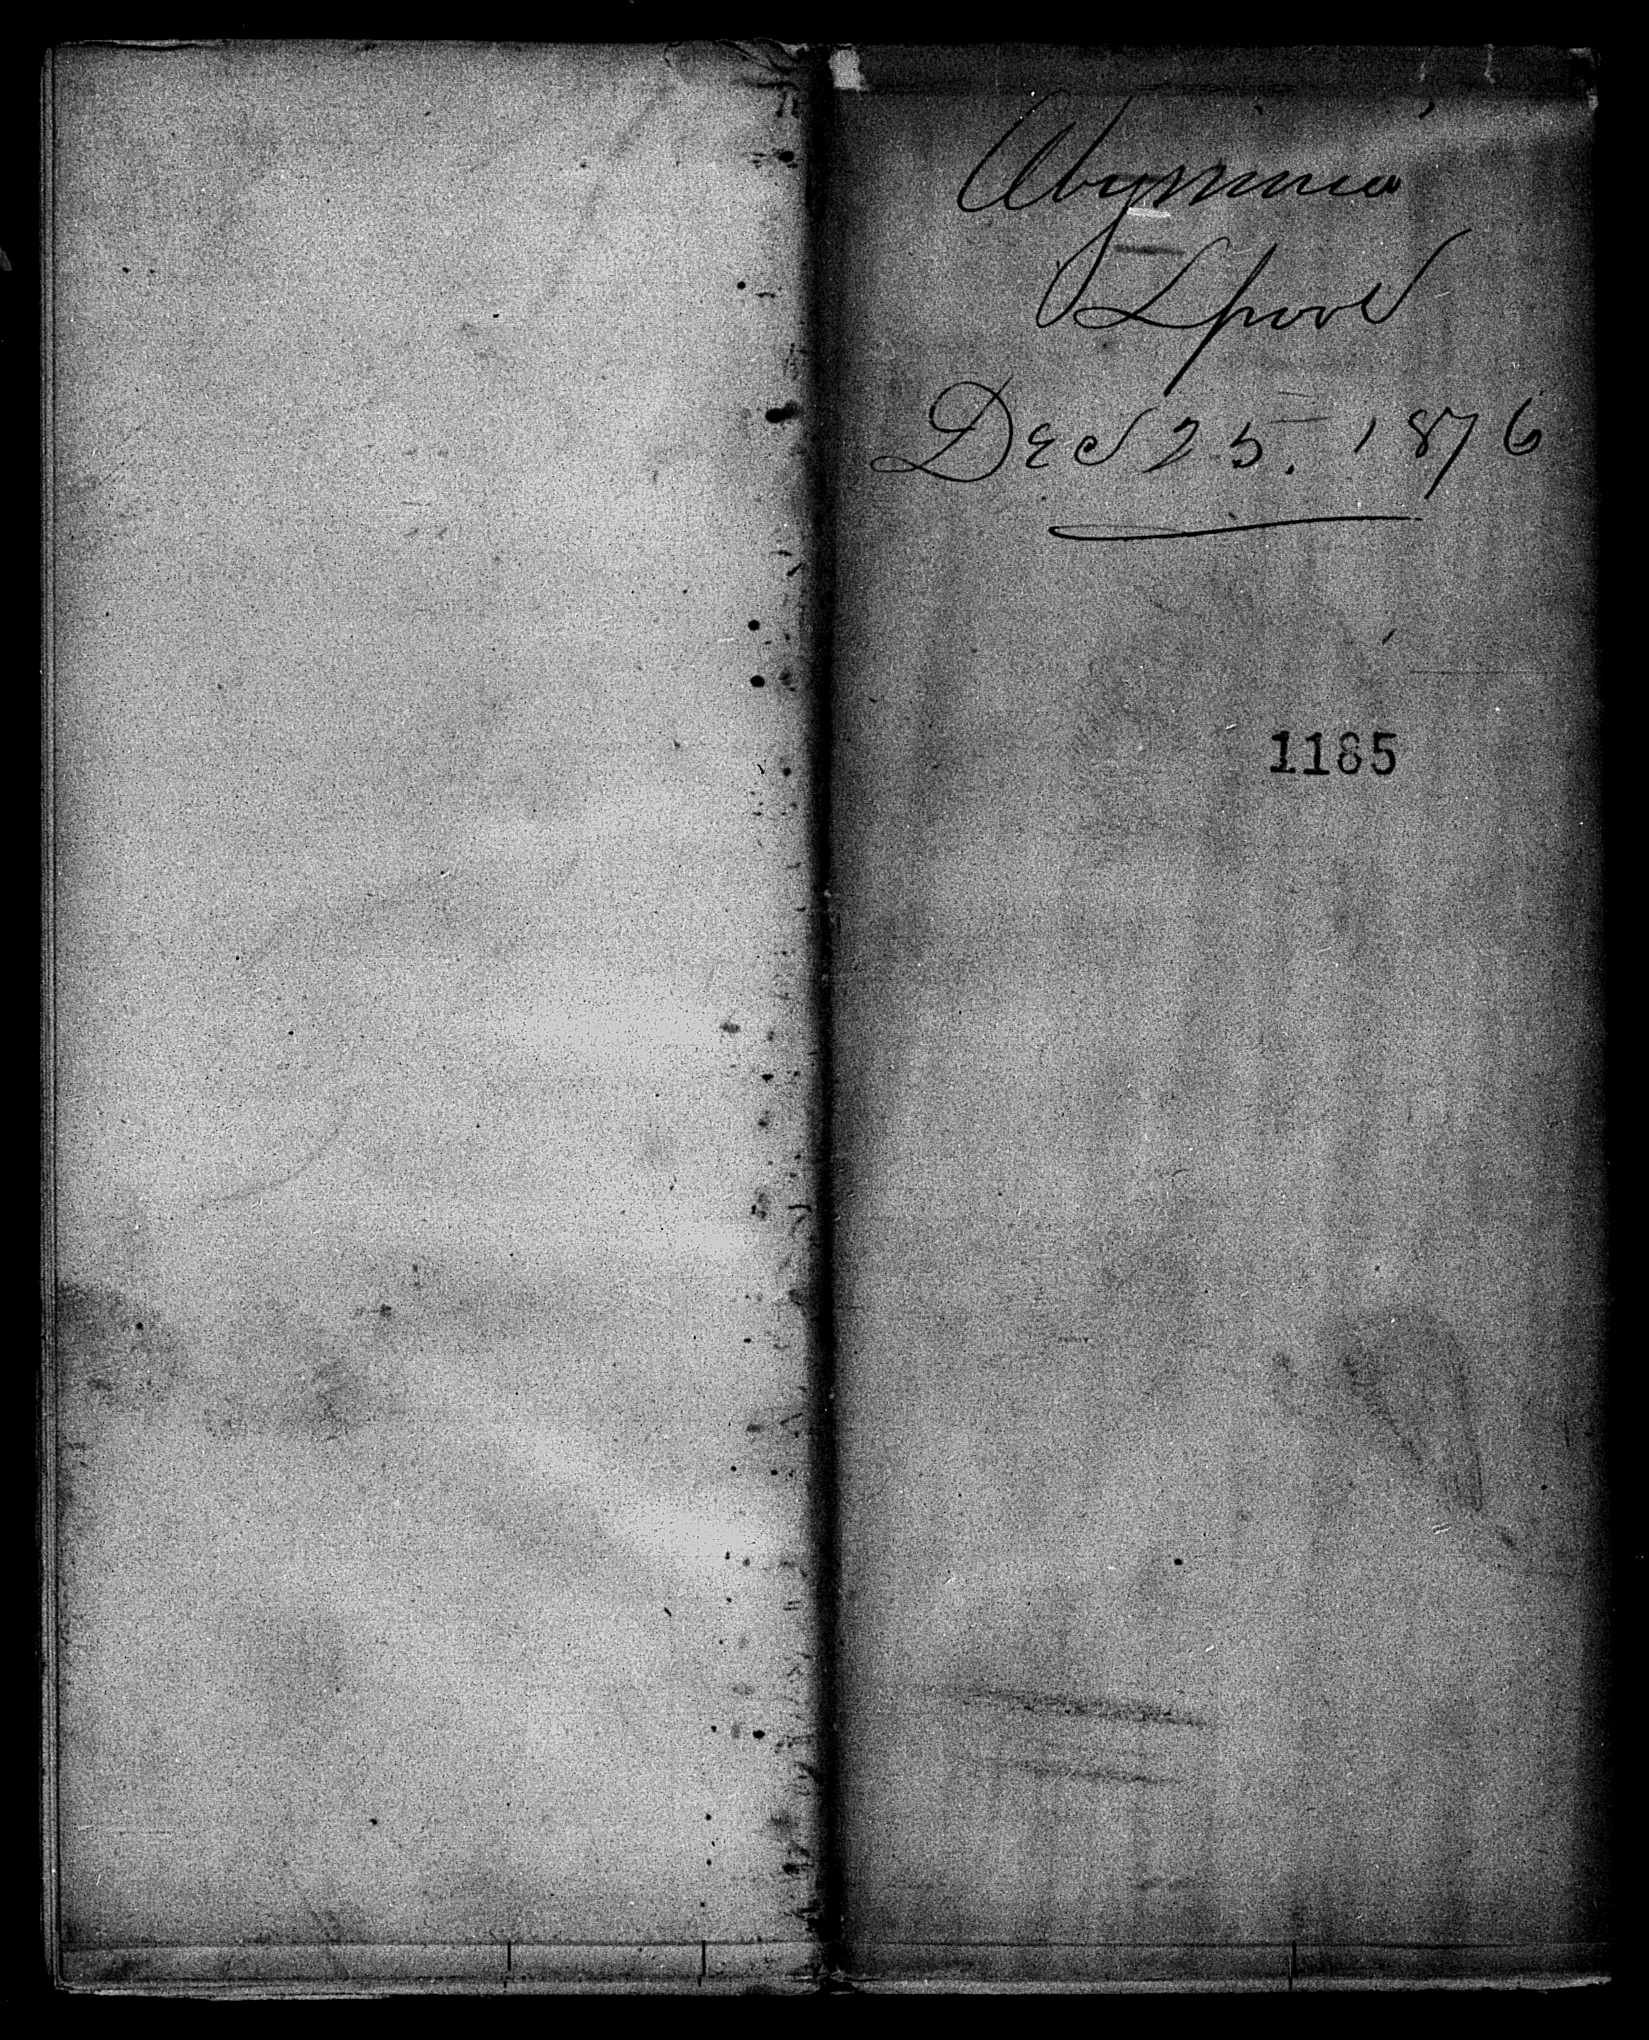 Abyssinia
Lpool
Dec 25. 1876
1185